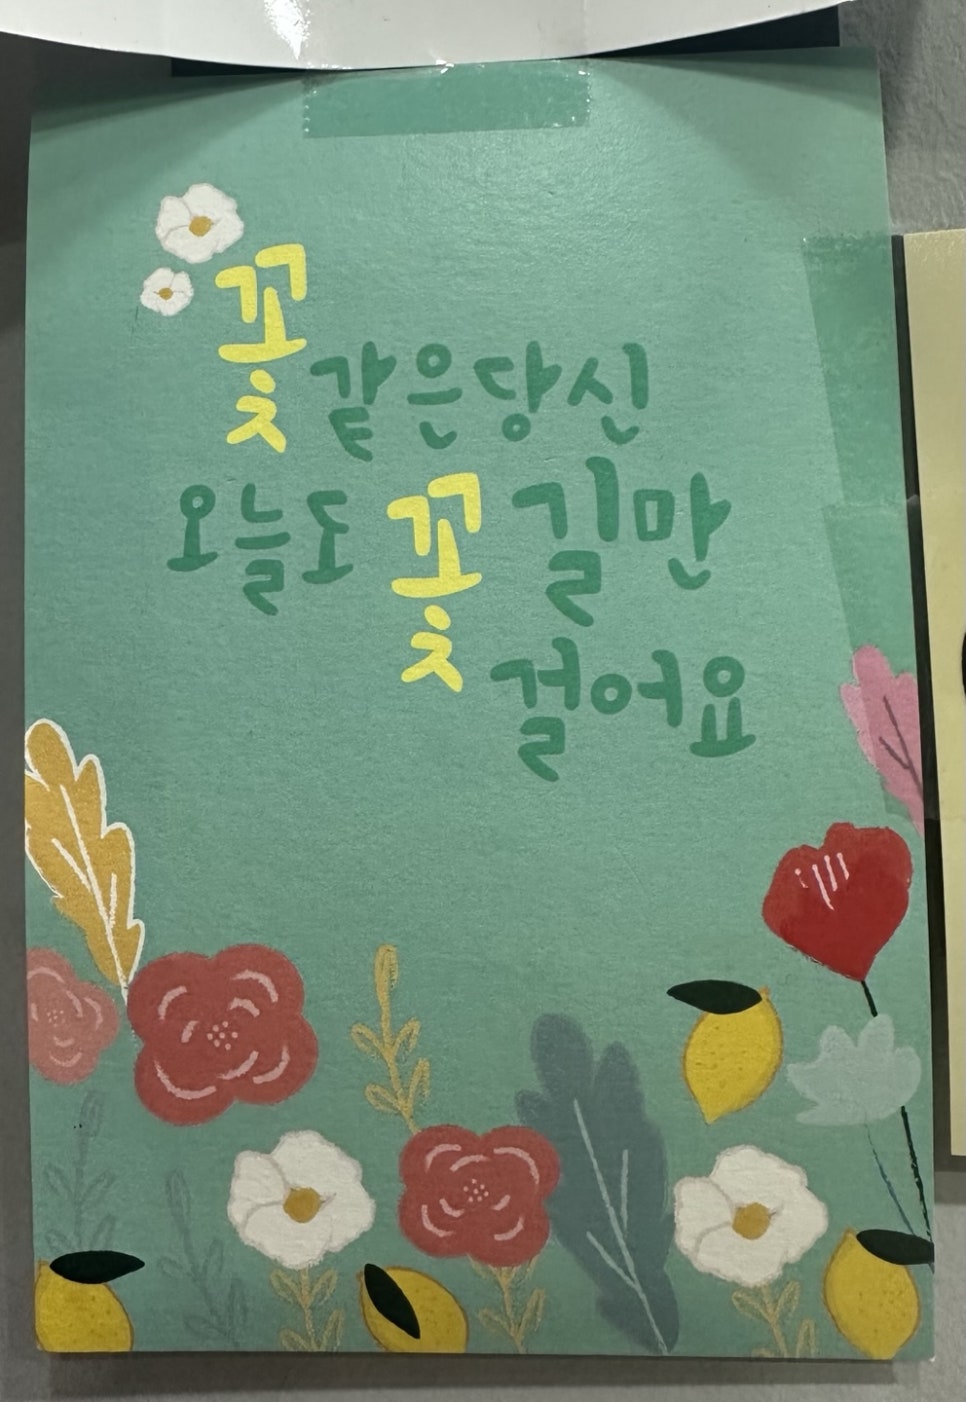 꽃같은당신
오늘도 꽃길만
걸어요